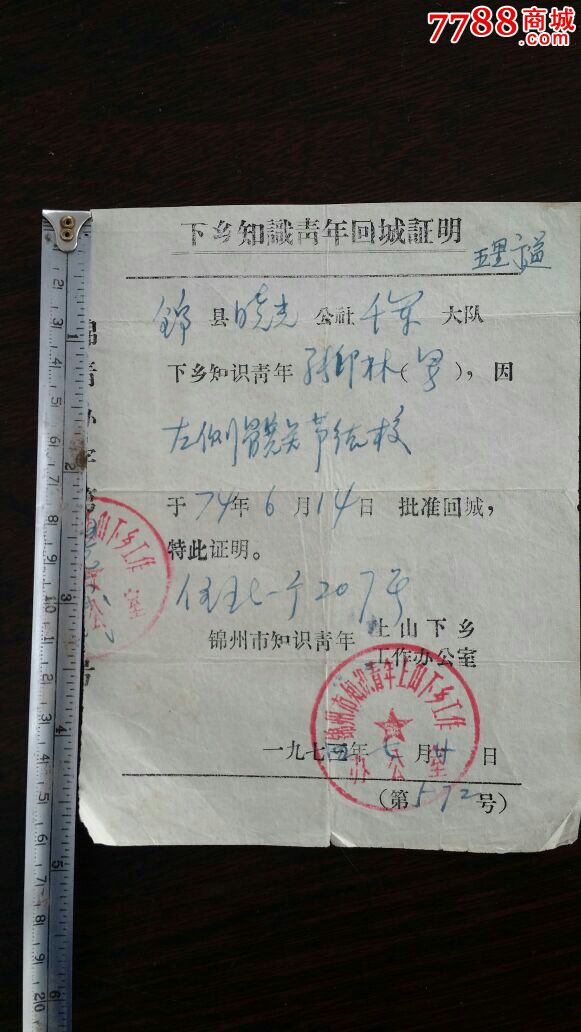 7788商城
.com
下乡知識青年回城証明
五里
锦县晓光公社千军大队
下乡知识青年 林(男),因
左侧髋关节结核
于74年6月14日 批准回城,
特此证明。
住 一 207号
锦州市知识青年 上山下乡
工作办公室
锦州市知识青年上山下乡工作
办公室
一九七 年七月4日
(第572号)
锦青办字第
山下乡工作
公室